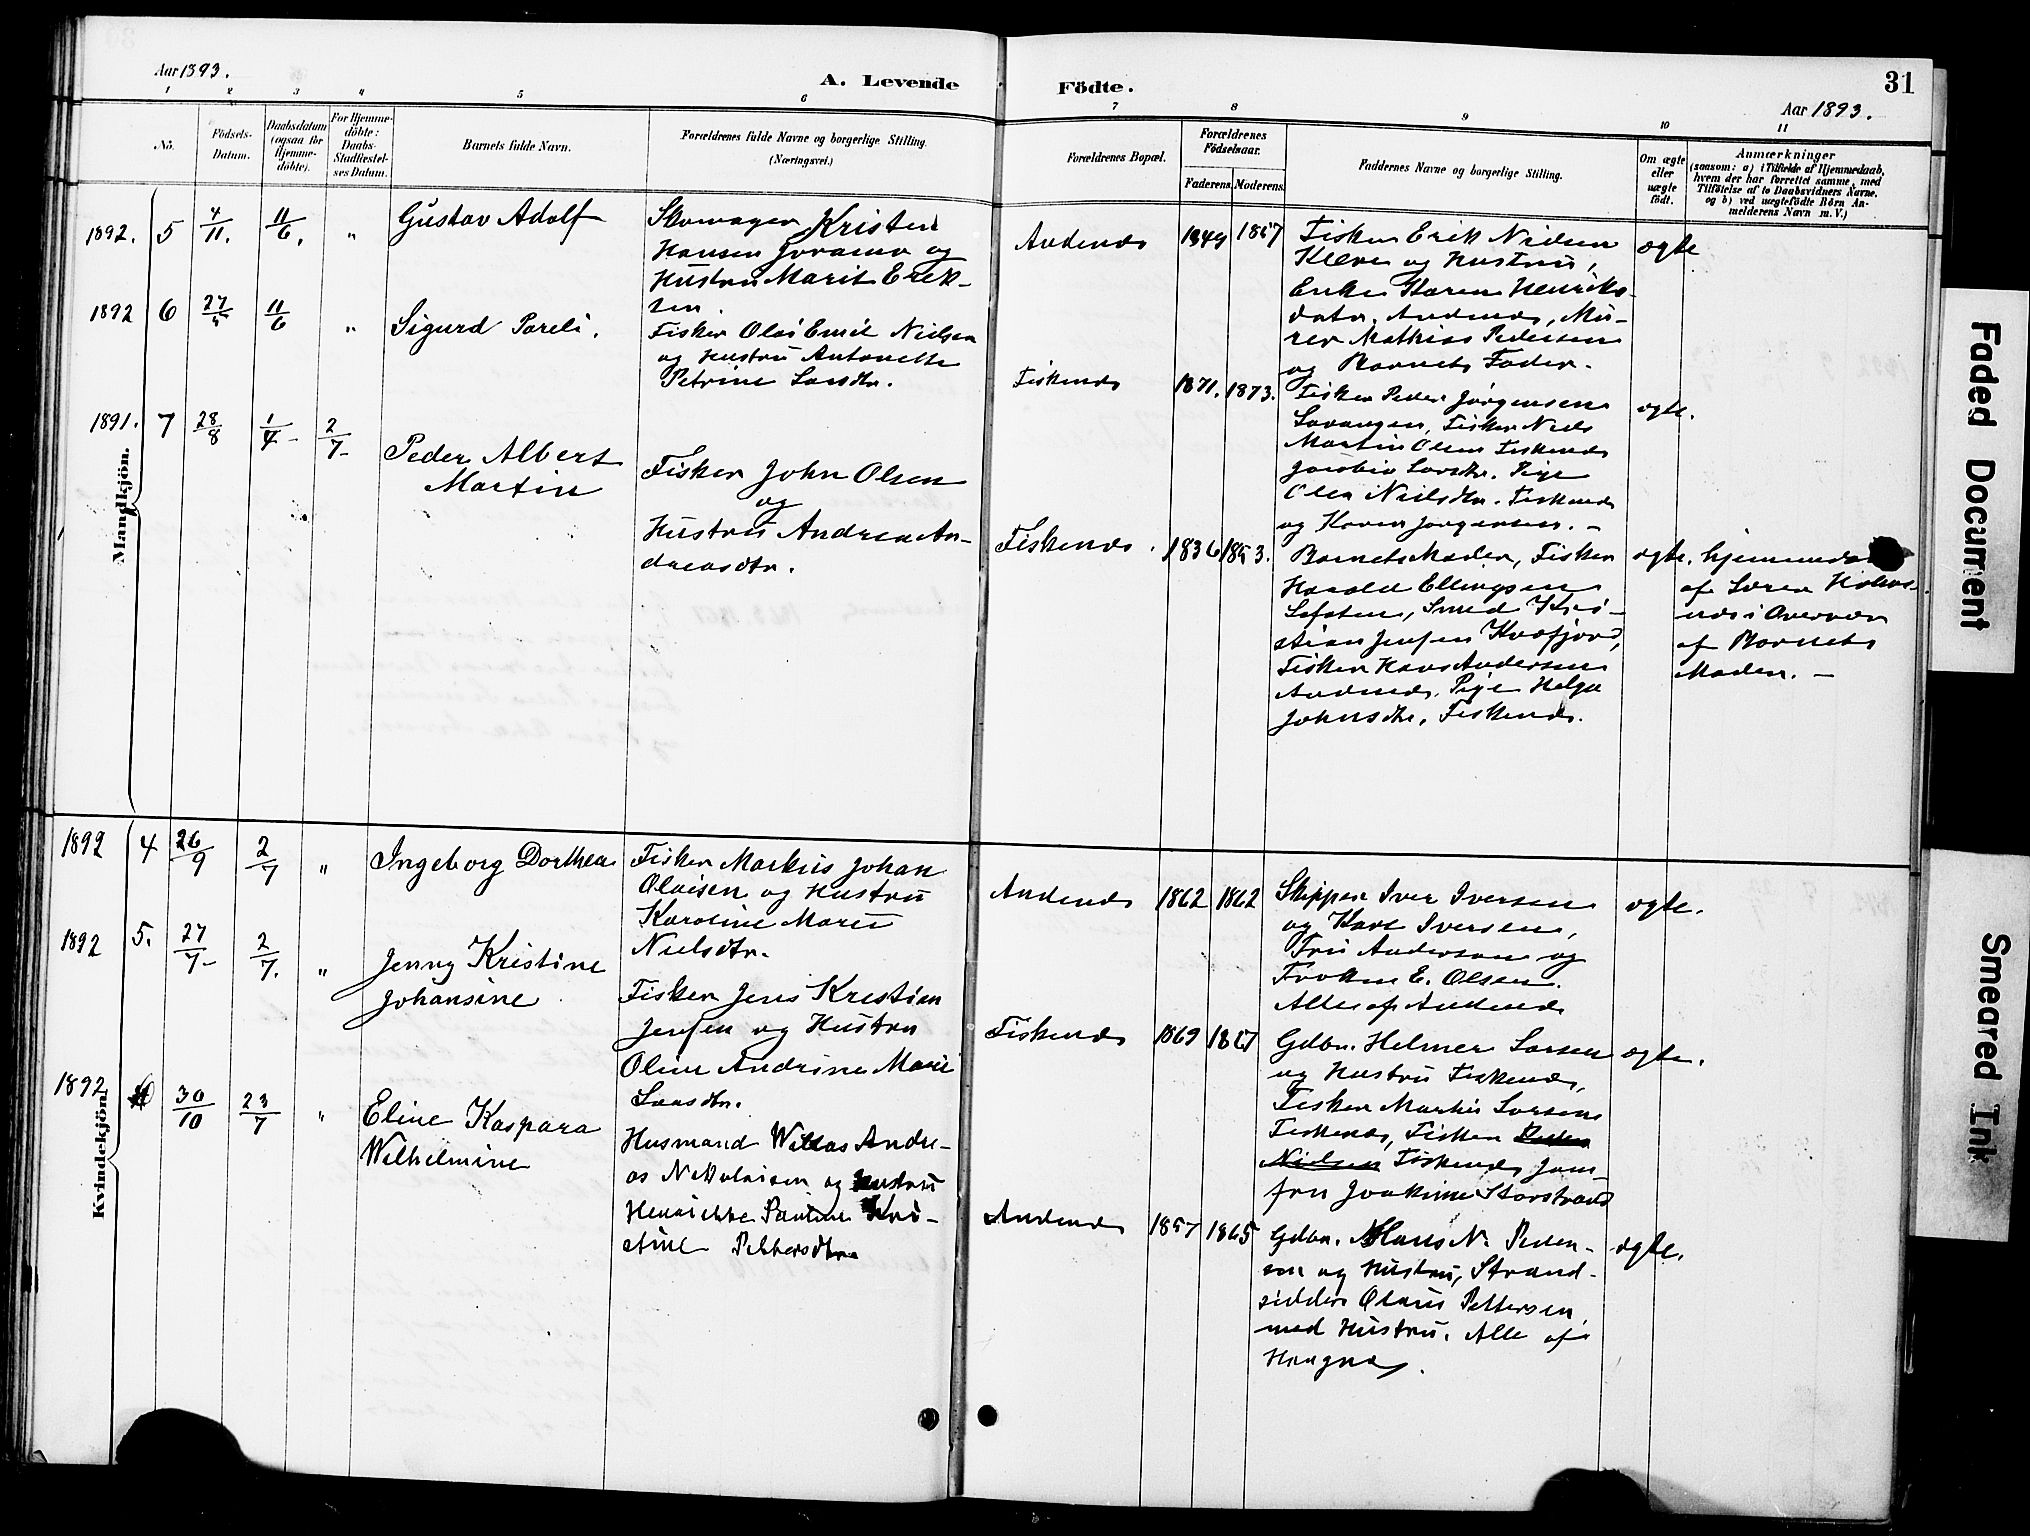 Aar 1893.
A. Levende
Födte.
31
Aar 1893.
1 2 3 4 5 6 7 8 9 10 11
No.
Födsels-
Datum.
Daabsdatum
(ogsaa for
Hjemme-
döbte).
For Hjemme-
döbte:
Daabs-
Stadfæstel-
ses Datum.
Barnets fulde Navn.
Forældrenes fulde Navne og borgerlige Stilling.
(Næringsvei.)
Forældrenes Bopæl.
Forældrenes
Födselsaar.
Faderens. Moderens.
Faddernes Navne og borgerlige Stilling.
Om ægte
eller
uægte
födt.
Anmærkninger
(saasom: a) i Tilfælde af Hjemmedaab,
hvem der har forrettet samme, med
Tilföielse af to Daabsvidners Navne,
og b) ved uægtefödte Börn An-
melderens Navn m. V.)
Mandkjön.
1892. 5 4/11. 11/6. "
Gustav Adolf
Skomager Kristen
Hansen Joramo og
Hustru Marit Erik-
sen.
Andenes 1849 1867
Fisker Erik Nielsen
Kleven og Hustru,
Enke Karen Henriks-
datr. Andenes, Mu-
rer Mathias Pedersen
og Barnets Fader.
ægte
1892 6 27/5 11/6 "
Sigurd Pareli.
Fisker Olai Emil Nielsen
og Hustru Antonette
Petrine Larsdtr.
Fiskenes 1871. 1873.
Fisker Peder Jörgensen
Lavangen, Fisker Niels
Martin Olsen Fiskenes
Jacobia Larsdtr. Pige
Olea Nielsdtr. Fiskenes
og Karen Jörgensen. -
ægte.
1891. 7 28/8 1/4- 2/7-
Peder Albert
Martin
Fisker John Olsen
og
Hustru Andrea An-
dreasdtr.
Fiskenes. 1836 1853.
Barnets Moder, Fisker
Harald Ellingsen
Lofoten, Smed Kri-
stian Jensen Kvæfjord,
Fisker Hans Andersen
Andenes. Pige Helga
Johnsdtr, Fiskenes.
ægte.
af Sören
i Overvær
af Barnets
Moder. -
Kvindekjön.
1892 4 26/9 2/7 "
Ingeborg Dorthea
Fisker Markus Johan
Olaisen og Hustru
Karoline Marie
Nielsdtr.
Andenes 1862 1862
Skipper Iver Iversen
og Karl Iversen,
Fru Andersen og
Fröken E. Olsen.
Alle af Andenes
ægte.
1892 5. 27/7- 2/7. "
Jenny Kristine
Johansine
Fisker Jens Kristian
Jensen og Hustru
Oline Andrine Marie
Larsdtr.
Fiskenes 1869 1867
Gdbr. Helmer Larsen
og Hustru Fiskenes,
Fisker Martin Larsen
Fiskenes, Fisker Peder
Nielsen Fiskenes Jom-
fru Joakime Storstrand
ægte.
1892 30/10 23/7 "
Eline Kaspara
Wilhelmine
Husmand Andre-
as Nikolaisen og Hustru
Henriette Pauline Kri-
stine Pettersdtr
Andenes 1857 1865
Gdbr. Hans N. Peder-
sen og Hustru, Strand-
sidder Olaus Pettersen
med Hustru. Alle af
Haugnes.
ægte.
Faded Document
Smeared Ink